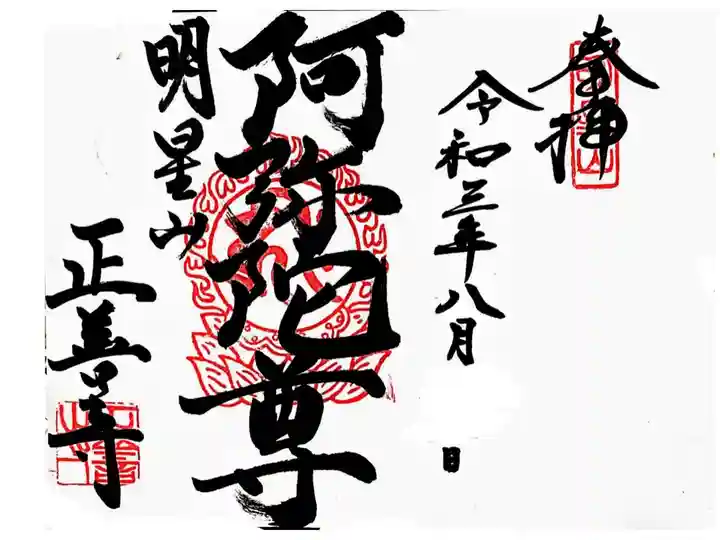 奉拝
令和三年八月 日
阿弥陀尊
明星山
正善寺